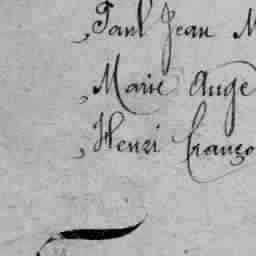 Paul Jean M
Marie Ange
Henri Franço